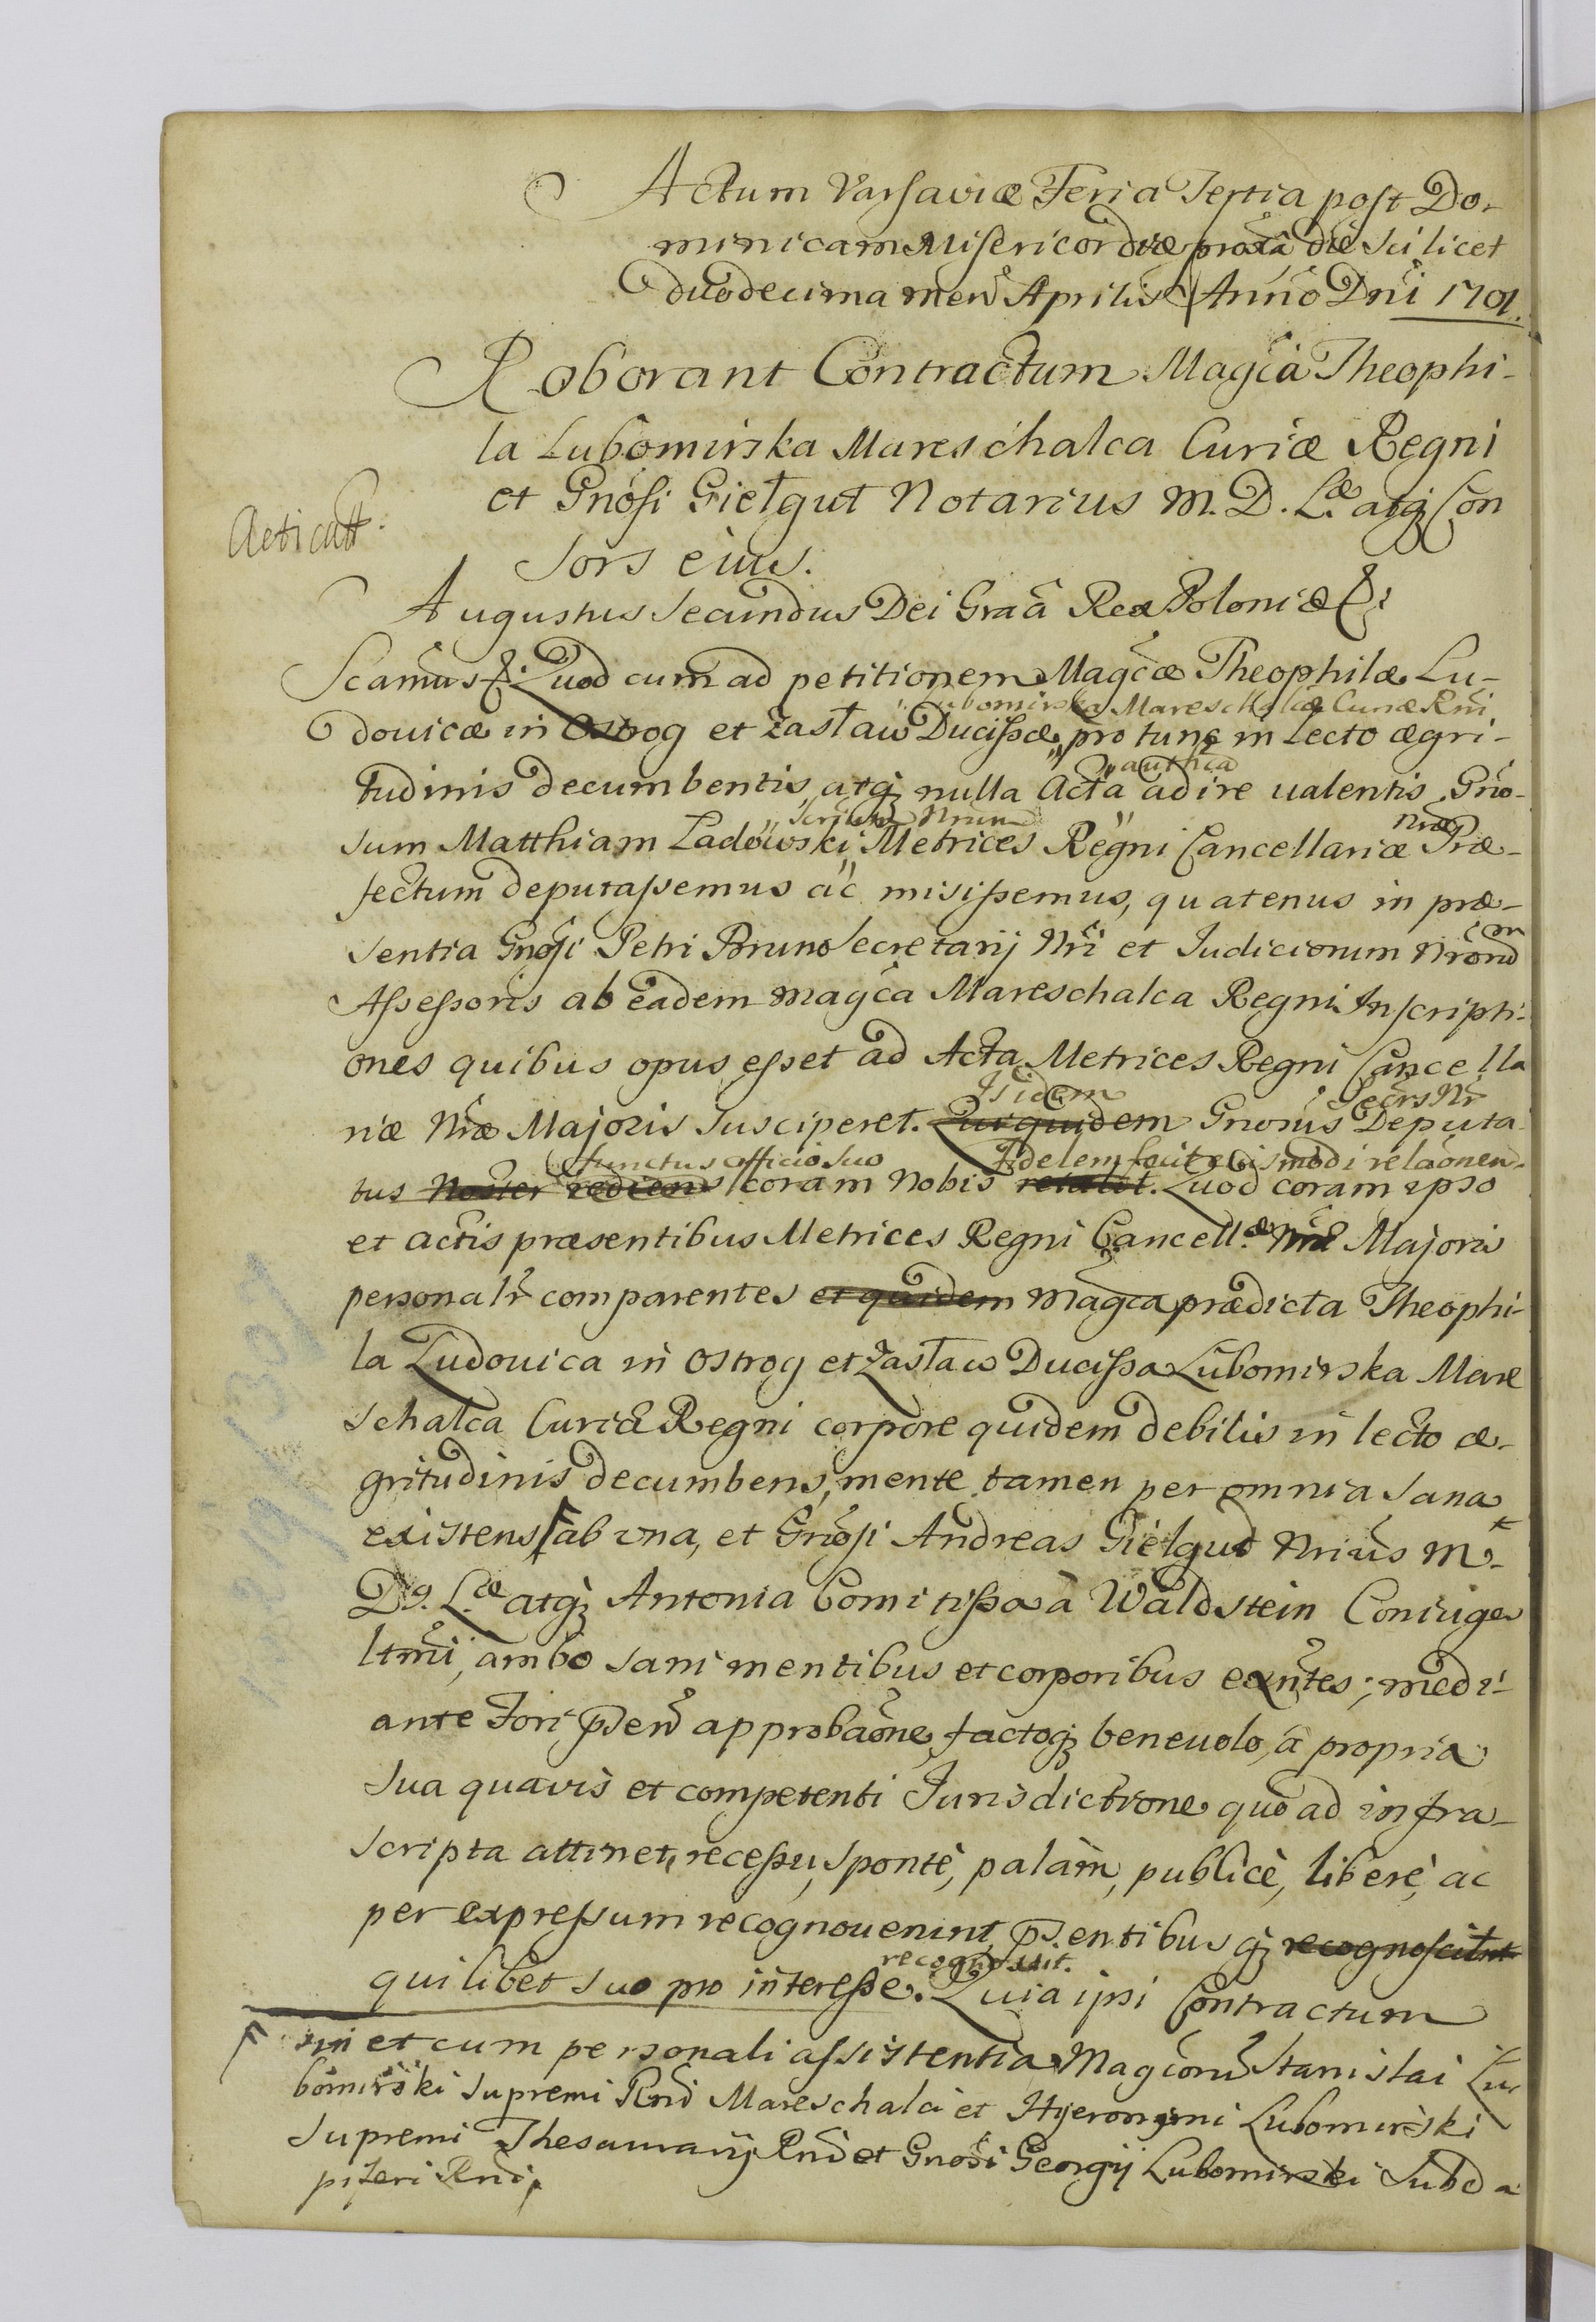 Actum Varsaviæ Feria Tertia post Do-
minicam Misericordiæ proxâ die scilicet
duodecima mens Aprilis Anno Dni 1701.
Roborant Contractum Magca Theophi-
la Lubomirska Mareschalca Curiæ Regni
et Gnosi Giełgut Notarius M. D. L.æ atq Con
sors eius.
Acticatt.
Augustus Secundus Dei Graa Rex Poloniæ &
Scamus &. Quod cum ad petitionem Magcæ Theophilæ Lu-
Lubomirska Mareschalcæ Curiæ Rni
douicæ in Ostrog et Zasław Ducissæ pro tunc in Lecto ægri-
authca
tudinis decumbentis atq nulla Acta adire ualentis Gno-
Nrum
Nræ
sum Matthiam Ladowski Metrices Regni Cancellariæ Præ-
fectum deputassemus ac misissemus, quatenus in præ-
sentia Gnosi Petri Bruno Secretarij Nri et Iudiciorum Nrom
Assessoris ab eadem Magca Mareschalca Regni Inscripti-
ones quibus opus esset ad Acta Metrices Regni Cancella
Isidem
Secrs Nr
riæ Nræ Majoris susciperet. Qui quidem Gnosus Deputa-
functus officio suo
Fidelem fecit eiusmodi relaonem.
tus Noster rediens coram Nobis retulit. Quod coram ipso
et actis præsentibus Metrices Regni Cancell.æ Nræ Majoris
personalr comparentes et quidem Magca prædicta Theophi-
la Ludouica in Ostrog et Zasław Ducissa Lubomirska Mare
schalca Curiæ Regni corpore quidem debilis in lecto æ-
gritudinis decumbens, mente tamen per omnia sana
existens ab una, et Gnosi Andreas Giełgud Nrius M.
D. L.æ atq Antonia Comitissa à Waldstein Coniuges
ltmi, ambo sani mentibus et corporibus exntes; medi-
ante Fori psen approbaone, factoq benevolo, à propria
sua quavis et competenti Iurisdictione quo ad infra-
scripta attinet, recessu, sponte, palàm, publicè, liberè, ac
per expressum recognouerunt, psentibus q recognoscunt
recognoscit.
quilibet suo pro interesse. Quia ipsi Contractum
et cum personali assistentia Magcorum Stanislai Lu-
bomirski Supremi Rni Mareschalci et Hyeronymi Lubomirski
Supremi Thesaurarij Rni et Gnosi Georgij Lubomirski Subda
piferi Rni,